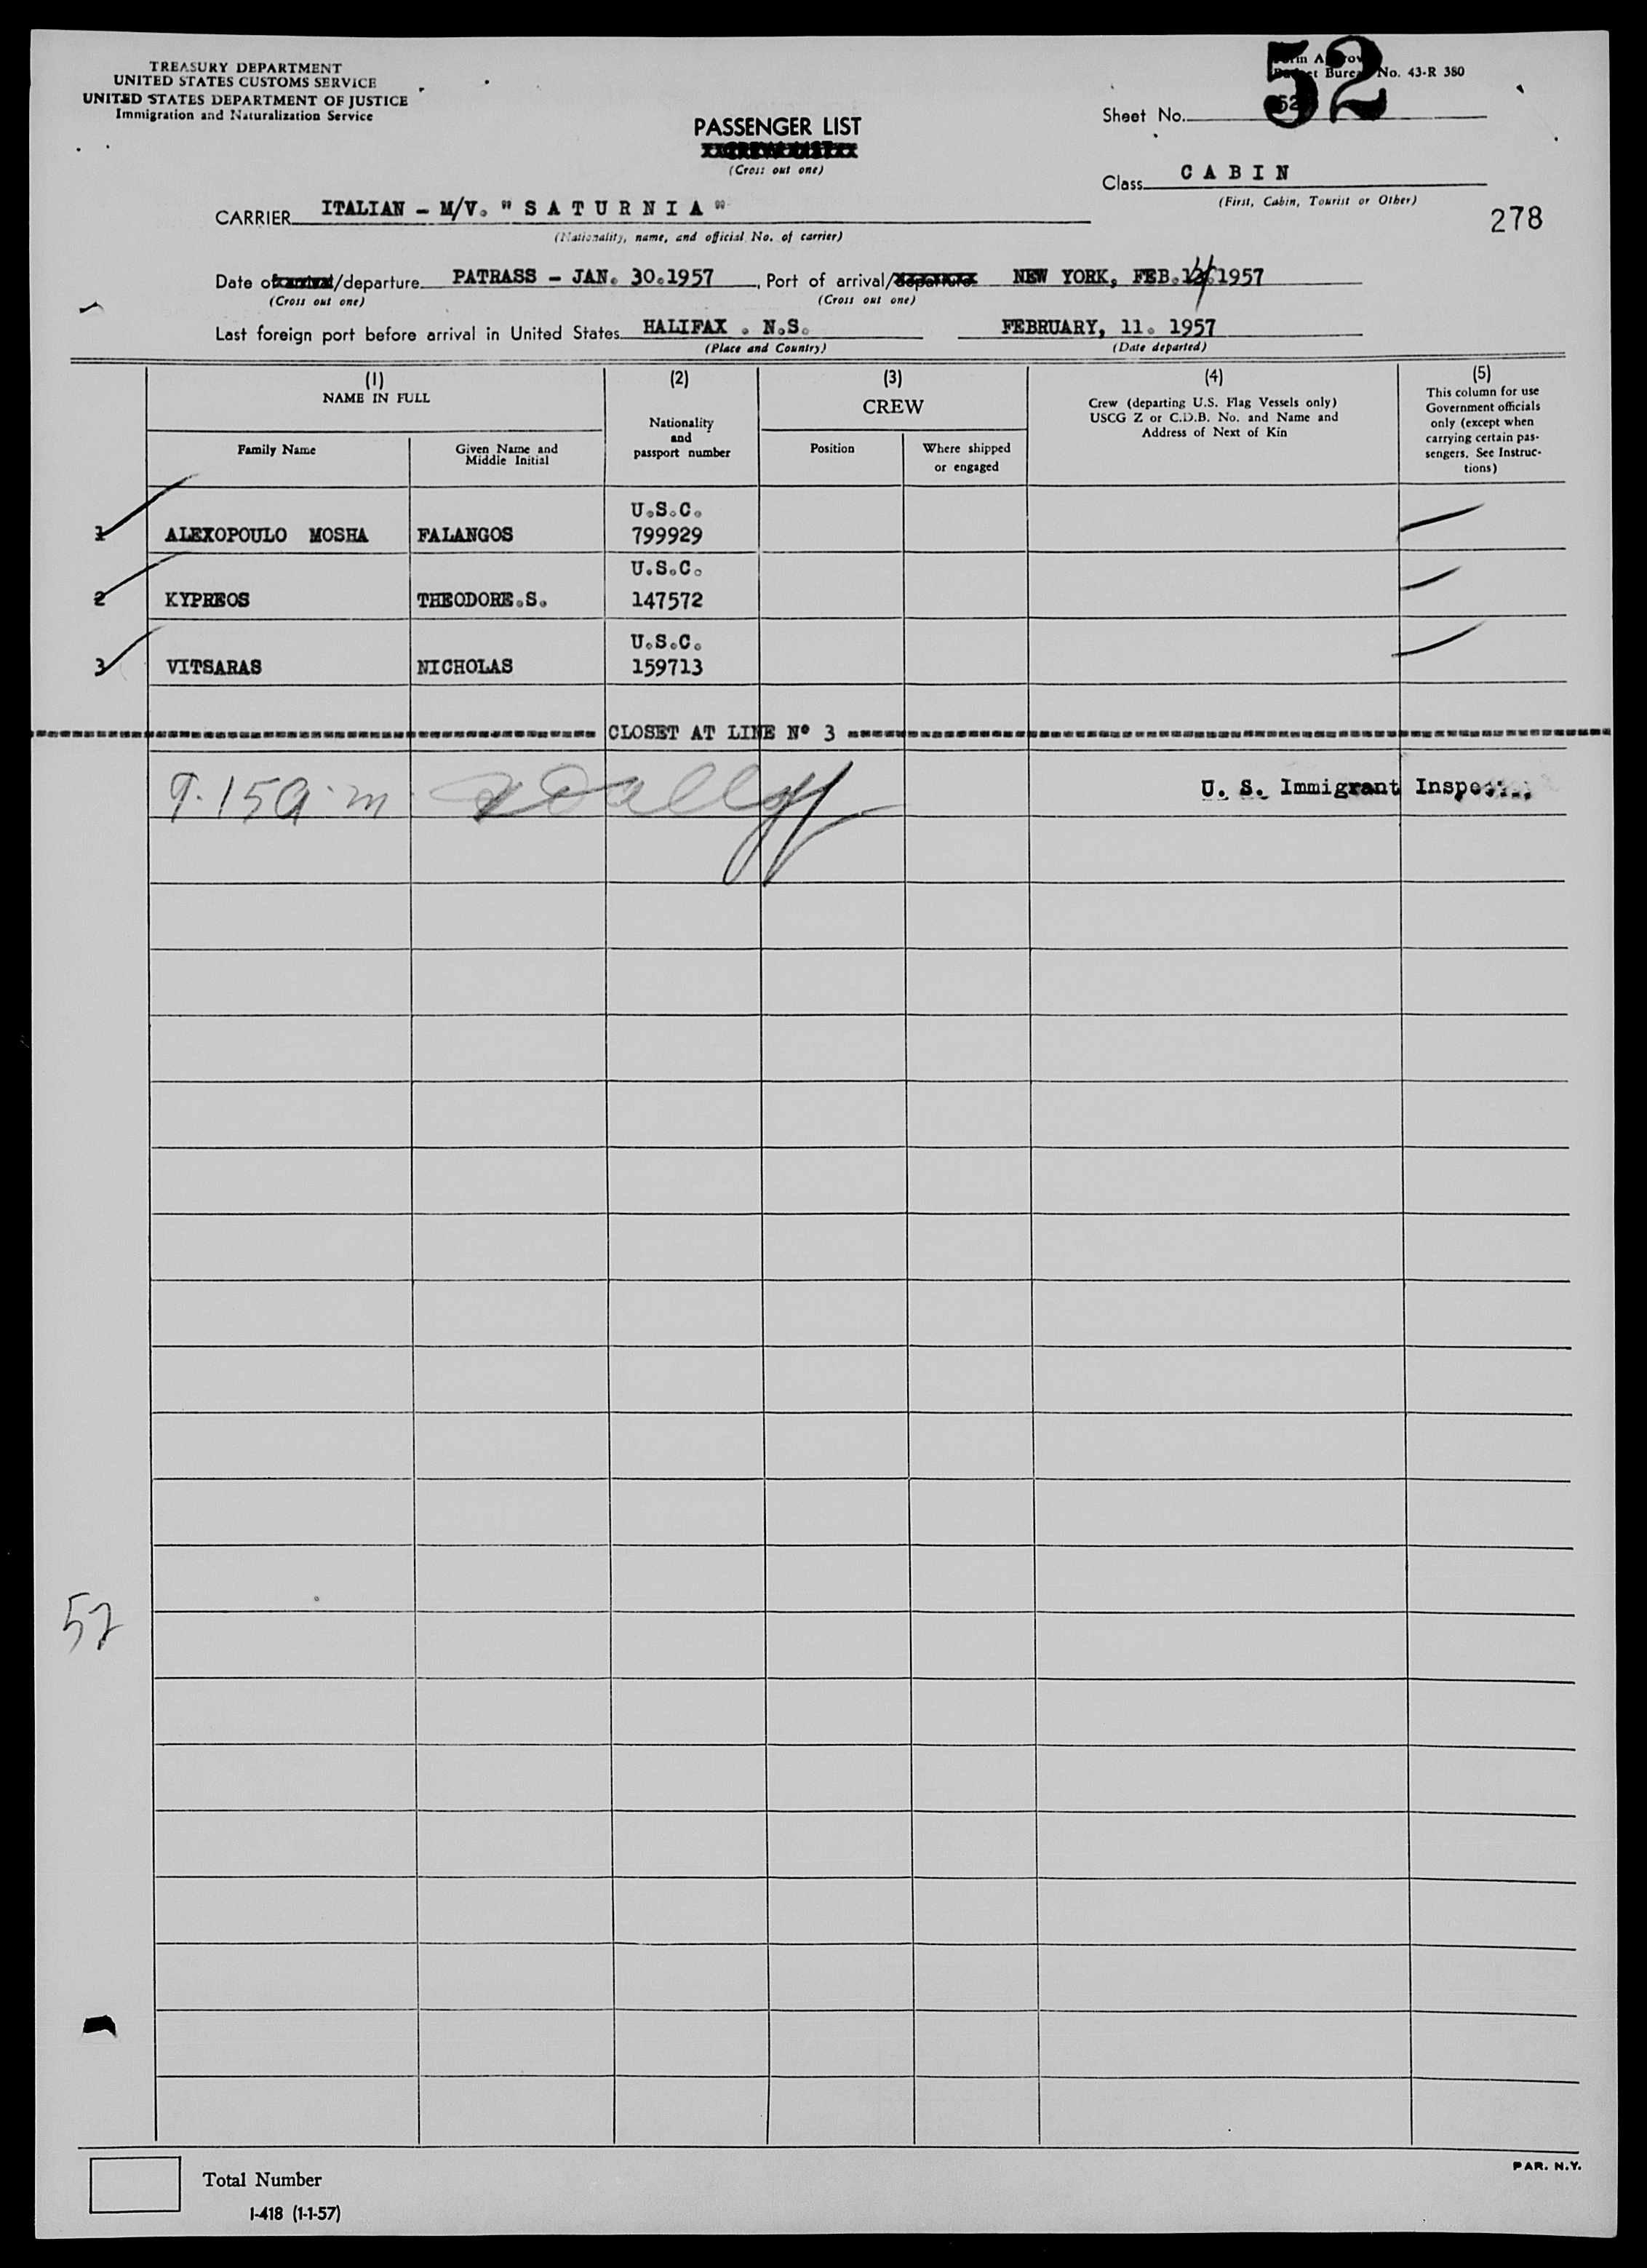 TREASURY DEPARTMENT
UNITED STATES CUSTOMS SERVICE
UNITED STATES DEPARTMENT OF JUSTICE
Immigration and Naturalization Service
No. 43-R 380
52
Sheet No. 52
PASSENGER LIST
(Cross out one)
Class CABIN
(First, Cabin, Tourist or Other)
278
CARRIER ITALIAN - M/V. "SATURNIA"
(Nationality, name, and official No. of carrier)
Date of /departure PATRASS - JAN. 30.1957, Port of arrival/departure NEW YORK, FEB. 1957
(Cross out one) (Cross out one)
Last foreign port before arrival in United States HALIFAX . N.S. FEBRUARY, 11. 1957
(Place and Country) (Date departed)
(1) (2) (3) (4) (5)
NAME IN FULL
Family Name
Given Name and
Middle Initial
Nationality
and
passport number
CREW
Position
Where shipped
or engaged
Crew (departing U.S. Flag Vessels only)
USCG Z or C.D.B. No. and Name and
Address of Next of Kin
This column for use
Government officials
only (except when
carrying certain pas-
sengers. See Instruc-
tions)
U.S.C.
1 ALEXOPOULO MOSHA FALANGOS 799929
U.S.C.
2 KYPREOS THEODORE.S. 147572
U.S.C.
3 VITSARAS NICHOLAS 159713
CLOSET AT LINE Nº 3
U. S. Immigrant
52
Total Number
I-418 (1-1-57)
PAR. N.Y.